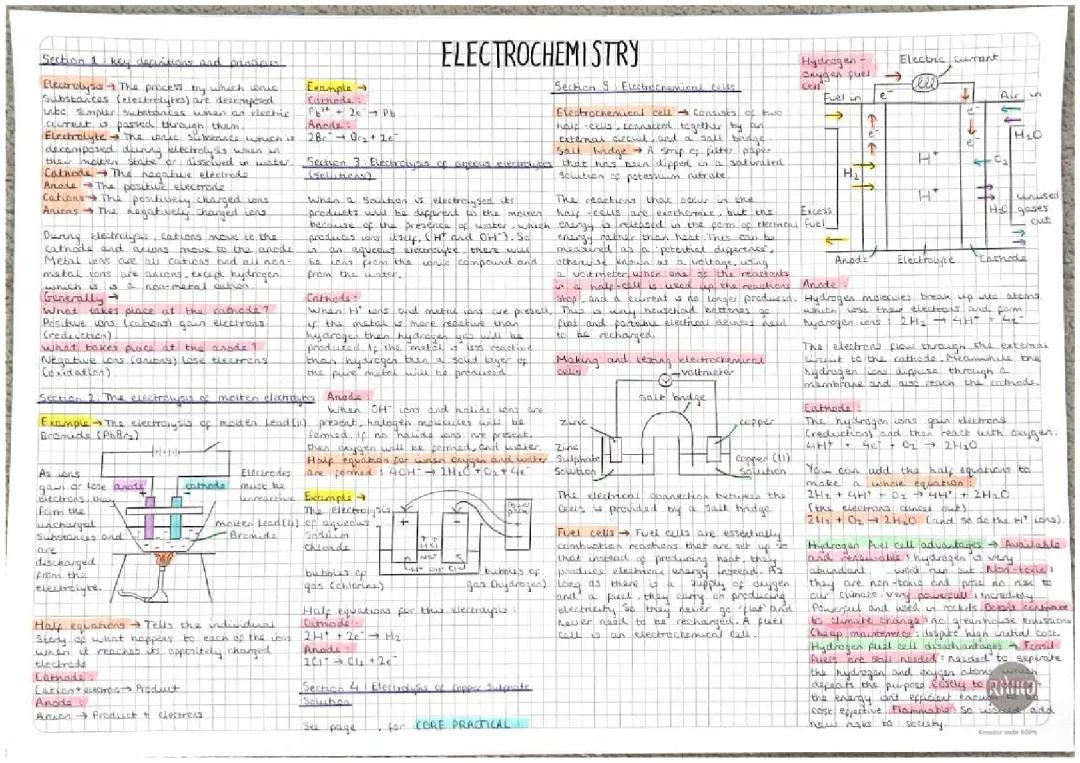 ELECTROCHEMISTRY
Section 1: key definitions and principles
Electrolysis → The process by which ionic
substances (electrolytes) are decomposed
into simpler substances when an electric
current is passed through them.
Electrolyte → The ionic substance which is
decomposed during electrolysis when in
their molten state or dissolved in water.
Cathode → The negative electrode
Anode → The positive electrode
Cations → The positively charged ions
Anions → The negatively charged ions
During electrolysis, cations move to the
cathode and anions move to the anode
Metal ions are all cations and all non-
metal ions are anions, except hydrogen
which is is a non-metal cation.
Generally →
What takes place at the cathode?
Positive ions (cations) gain electrons
(reduction)
What takes place at the anode?
Negative ions (anions) lose electrons
(oxidation)
Section 2: The electrolysis of molten electrolytes
Example → The electrolysis of molten Lead(II)
Bromide (PbBr2)
As ions
gain or lose
electrons, they
form the
uncharged
substances and
are
discharged
from the
electrolyte.
anode
cathode
Electrodes
must be
unreactive
molten Lead(II)
Bromide
Half equations → Tells the individual
story of what happens to each of the ions
when it reaches its oppositely charged
electrode
Cathode:
Cation + electrons → Product
Anode:
Anion → Product + electrons
Example →
Cathode:
Pb²⁺ + 2e⁻ → Pb
Anode:
2Br⁻ → Br2 + 2e⁻
Section 3: Electrolysis of aqueous electrolytes
(solutions)
When a solution is electrolysed its
products will be different to the molten
because of the presence of water, which
produces ions itself, (H⁺ and OH⁻). So
in an aqueous electrolyte there will
be ions from the ionic compound and
from the water.
Cathode:
When H⁺ ions and metal ions are present,
if the metal is more reactive than
hydrogen then hydrogen gas will be
produced. If the metal is less reactive
than hydrogen then a solid layer of
the pure metal will be produced
Anode:
When OH⁻ ions and halide ions are
present, halogen molecules will be
formed. If no halide ions are present,
then oxygen will be formed, and water
Half equation for when oxygen and water
are formed: 4OH⁻ → 2H2O + O2 + 4e⁻
Example →
The electrolysis
of aqueous
Sodium
Chloride
Power
pack
bubbles of
gas (chlorine)
bubbles of
gas (hydrogen)
Half equations for this electrolysis:
Cathode:
2H⁺ + 2e⁻ → H2
Anode:
2Cl⁻ → Cl2 + 2e⁻
Section 4: Electrolysis of Copper Sulphate
Solution
See page , for CORE PRACTICAL
Section 5: Electrochemical cells
Electrochemical cell → Consists of two
half-cells, connected together by an
external circuit, and a salt bridge
Salt bridge → A strip of filter paper
that has been dipped in a saturated
solution of potassium nitrate
The reactions that occur in the
half-cells are exothermic, but the
energy is released in the form of electrical
energy rather than heat. This can be
measured as a 'potential difference',
otherwise known as a voltage, using
a voltmeter. When one of the reactants
in a half-cell is used up, the reactions
stop, and a current is no longer produced.
This is why household batteries go
flat and portable electrical devices need
to be recharged.
Making and testing electrochemical
cells
voltmeter
Salt bridge
Zinc
copper
Zinc
Sulphate
Solution
copper (II)
solution
The electrical connection between the
cells is provided by a salt bridge
Fuel cells → Fuel cells are essentially
combustion reactions that are set up so
that instead of producing heat, they
produce electrical energy instead. As
long as there is a supply of oxygen
and a fuel, they carry on producing
electricity. So they never go 'flat' and
never need to be recharged. A fuel
cell is an electrochemical cell.
Hydrogen-
oxygen fuel
cell
Electric current
Fuel in
e⁻
Air in
e⁻
e⁻
e⁻
H2O
H⁺
H2
O2
H⁺
H2O
Excess
Fuel
unused
gases
out
Anode
Electrolyte
Cathode
Anode:
Hydrogen molecules break up into atoms
which lose their electrons and form
hydrogen ions: 2H2 → 4H⁺ + 4e⁻
The electrons flow through the external
circuit to the cathode. Meanwhile the
hydrogen ions diffuse through a
membrane and also reach the cathode.
Cathode:
The hydrogen ions gain electrons
(reduction) and then react with oxygen:
4H⁺ + 4e⁻ + O2 → 2H2O
You can add the half equations to
make a whole equation:
2H2 + 4H⁺ + O2 → 4H⁺ + 2H2O
(the electrons cancel out)
2H2 + O2 → 2H2O (and so do the H⁺ ions).
Hydrogen fuel cell advantages → Available
and renewable: hydrogen is very
abundant won't run out Non-toxic:
they are non-toxic and pose no risk to
our climate. Very powerful: incredibly
powerful and used in rockets Doesn't contribute
to climate change: no greenhouse emissions
Cheap maintenance: despite high initial cost.
Hydrogen fuel cell disadvantages → Fossil
fuels are still needed: needed to separate
the hydrogen and oxygen atoms which
defeats the purpose Costly to
the energy isn't efficient enough to be
cost effective Flammable: so would add
new risks to society.